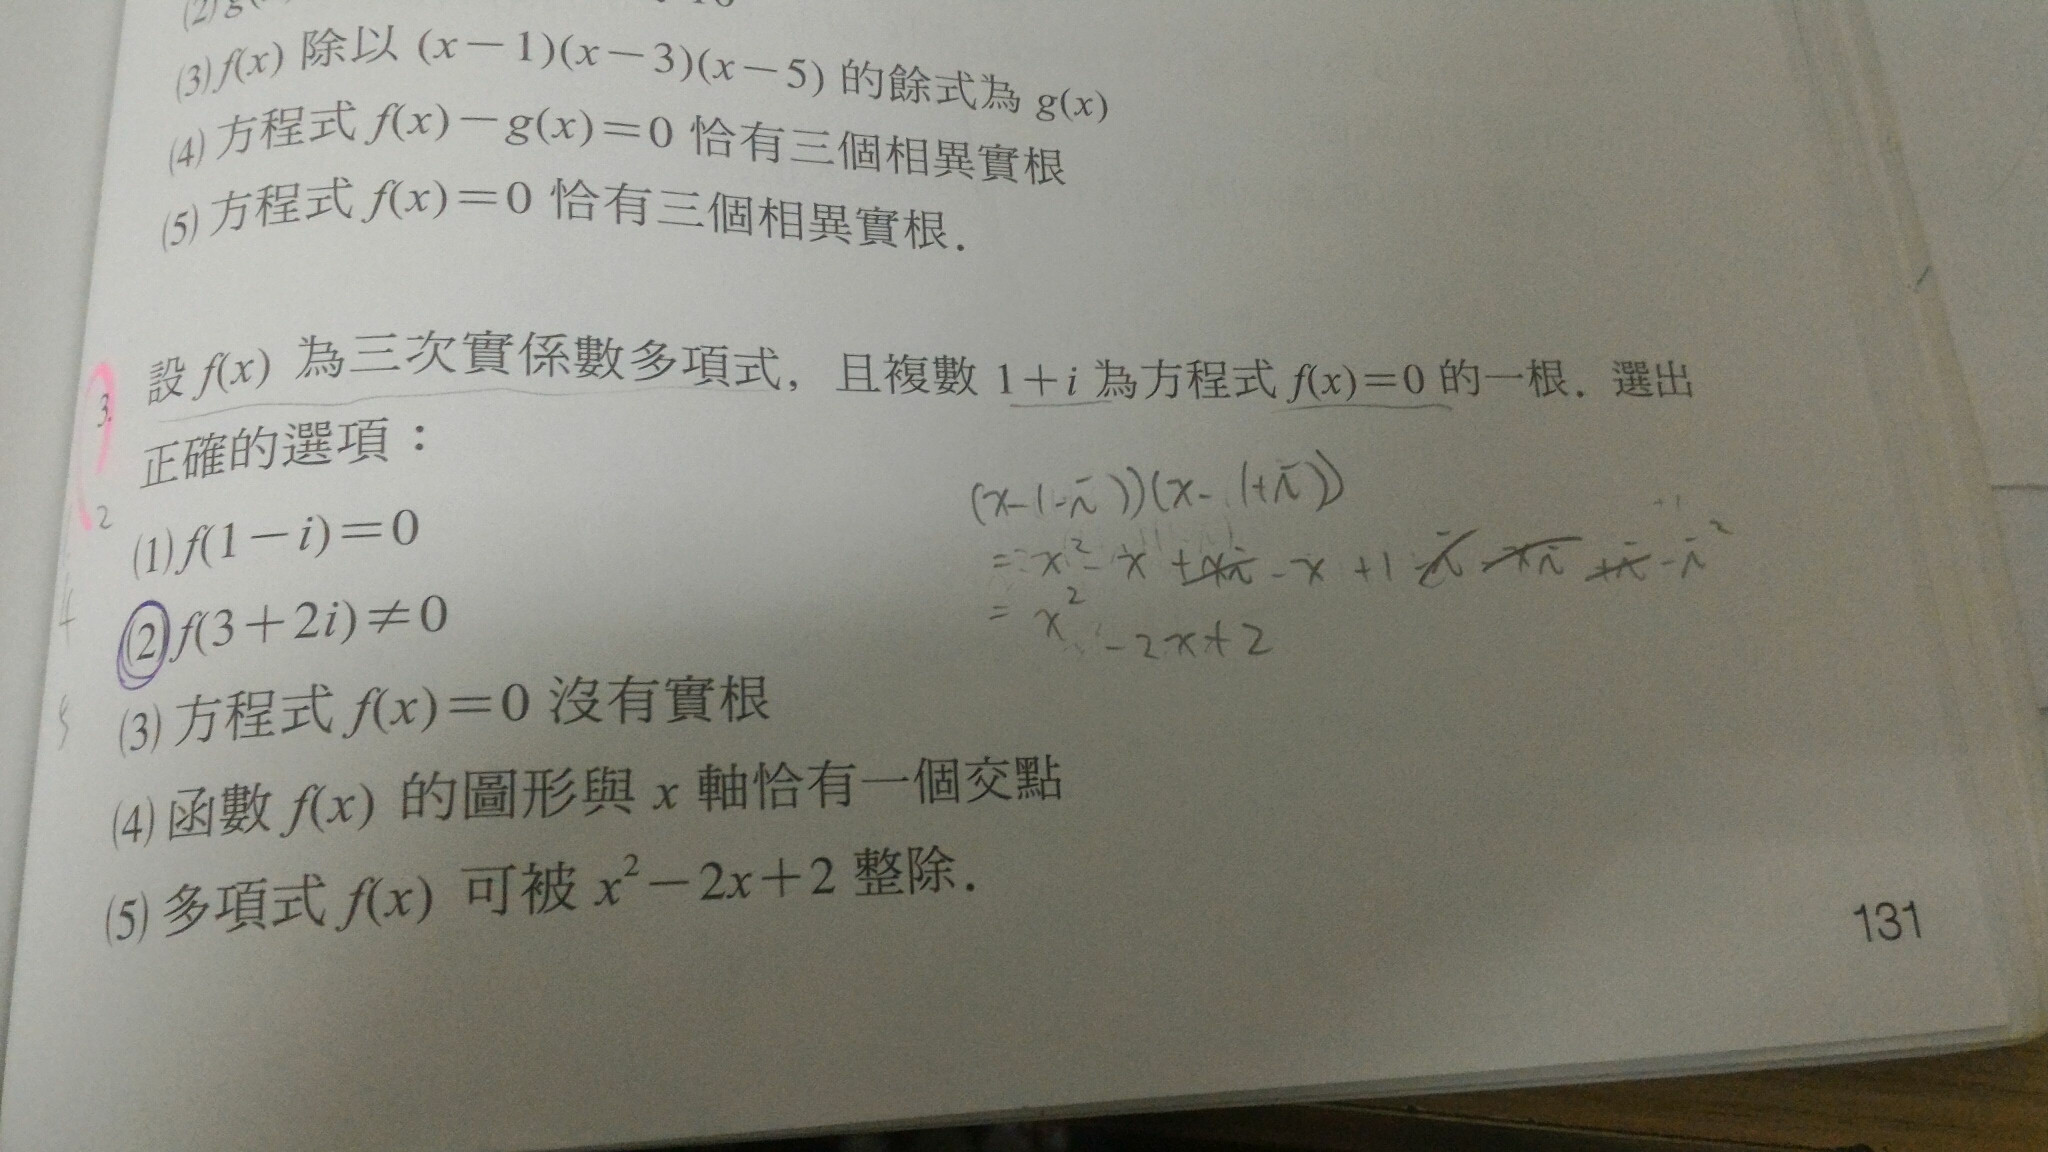 (3) f(x) 除以 (x－1)(x－3)(x－5) 的餘式為 g(x)
(4) 方程式 f(x)－g(x)＝0 恰有三個相異實根
(5) 方程式 f(x)＝0 恰有三個相異實根．
3. 設 f(x) 為三次實係數多項式，且複數 1＋i 為方程式 f(x)＝0 的一根．選出
正確的選項：
(x-(1-i))(x-(1+i))
2
(1) f(1－i)＝0
= x² - x + xi - x + 1 - i - xi + i - i²
+1
4
(2) f(3＋2i)≠0
= x² - 2x + 2
5
(3) 方程式 f(x)＝0 沒有實根
(4) 函數 f(x) 的圖形與 x 軸恰有一個交點
(5) 多項式 f(x) 可被 x²－2x＋2 整除．
131